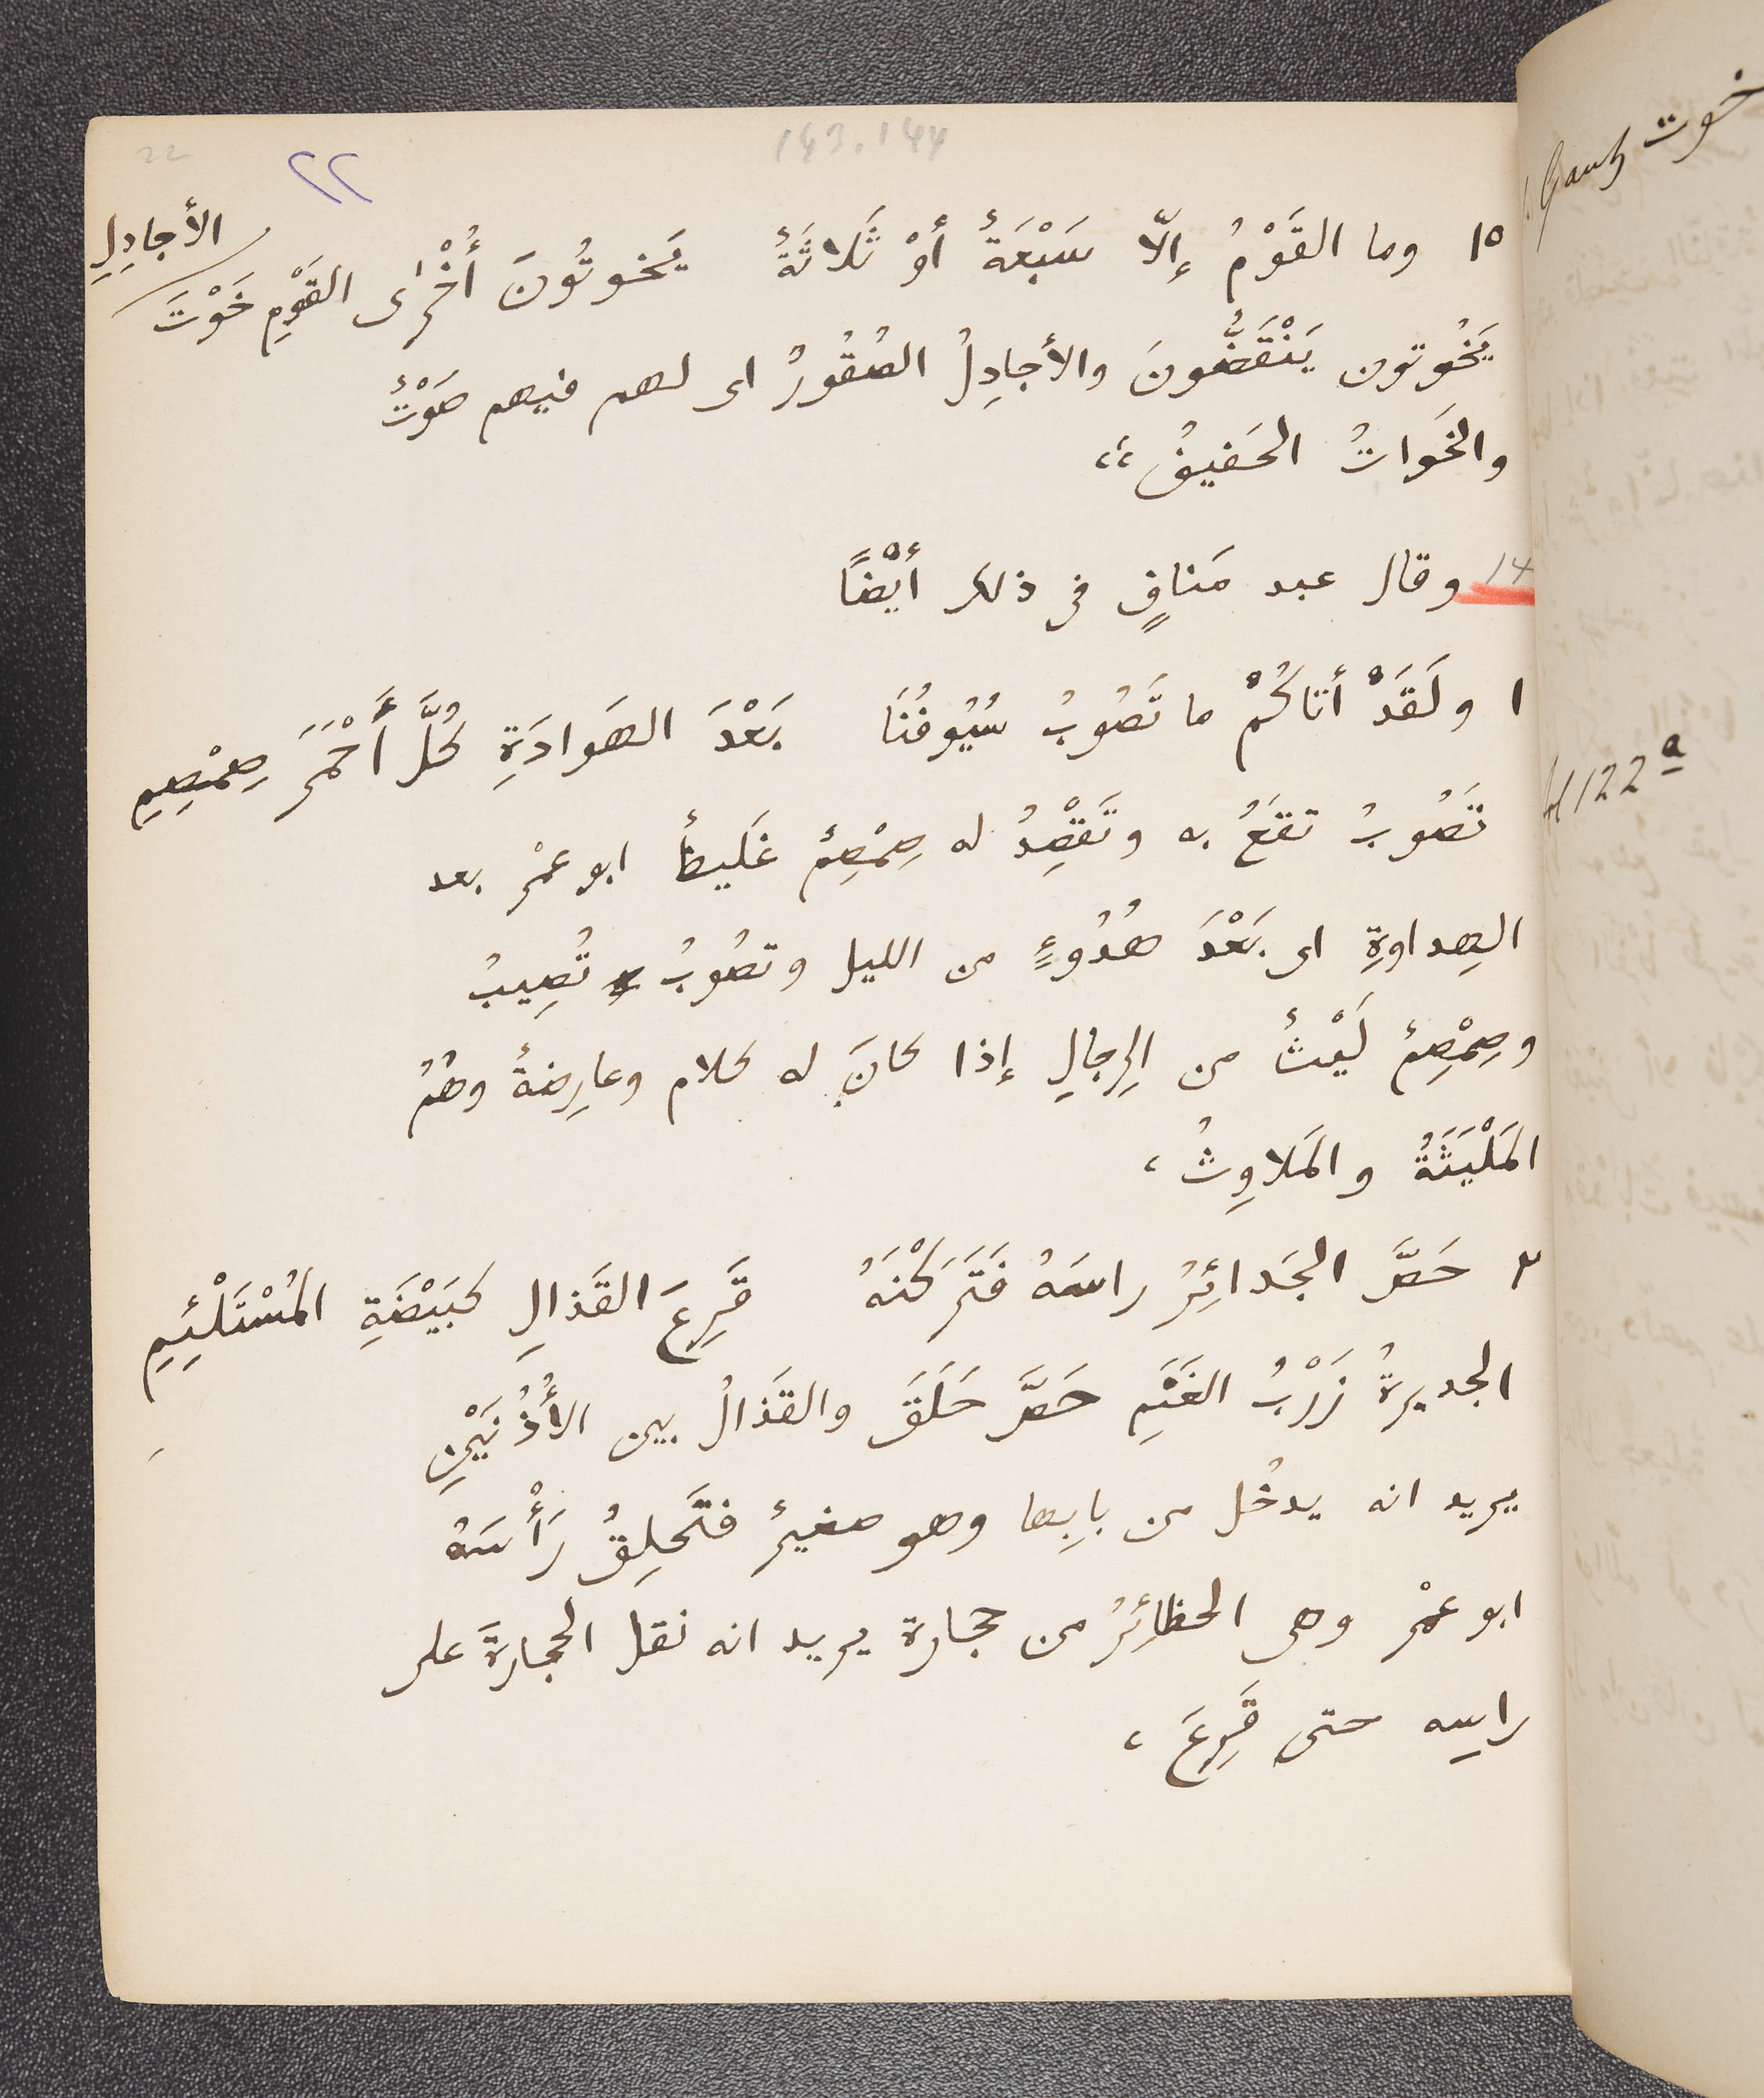 143.144
22
٢٢
١٥ وما القَوْمُ إلّا سَبْعَةٌ أوْ ثَلاثَةٌ يَخوتُونَ أُخْرٰى القَوْمِ خَوْتَ الأجادِلِ
يَخُوتون يَنْقَضُّونَ والأجادِلُ الصُقُورُ اى لهم فيهم صَوْتٌ
والخَوَاتُ الحَفيفُ،،
14 وقال عبد مَنافٍ فى ذلك أيْضًا
١ ولَقَدْ أتاكُمْ ما تَصُوبُ سُيُوفُنَا بَعْدَ الهَوادَةِ كُلَّ أَحْمَرَ صِمْصِمِ
تَصُوبُ تقَعُ به وتَقْصِدُ له صِمْصِمٌ غَليظٌ ابو عمْر بعد
الهِداوةِ اى بَعْدَ هُدُوءٍ من الليل وتصُوبُ تُصِيبُ
وصِمْصِمٌ لَيْثٌ من الرِجالِ إذا كانَ له كلام وعارِضةٌ وهُمُ
المَلْيَثَةُ والمَلاوِثُ،
٢ حَصَّ الجَدائِرُ راسَهُ فَتَرَكْنَهُ قَرِعَ القَذالِ كبَيْضَةِ المُسْتَلْئِمِ
الجديرةُ زَرْبُ الغَنَمِ حَصَّ حَلَقَ والقَذالُ بين الأُذُنَيْنِ
يريد انه يدخُل من بابِها وهو صغيرٌ فتَحلِقُ رَأْسَهُ
ابو عمْر وهى الحظائِرُ من حجارة يريد انه نقل الحجارةَ على
راسِه حتى قَرِعَ،
خوت
H 122 a